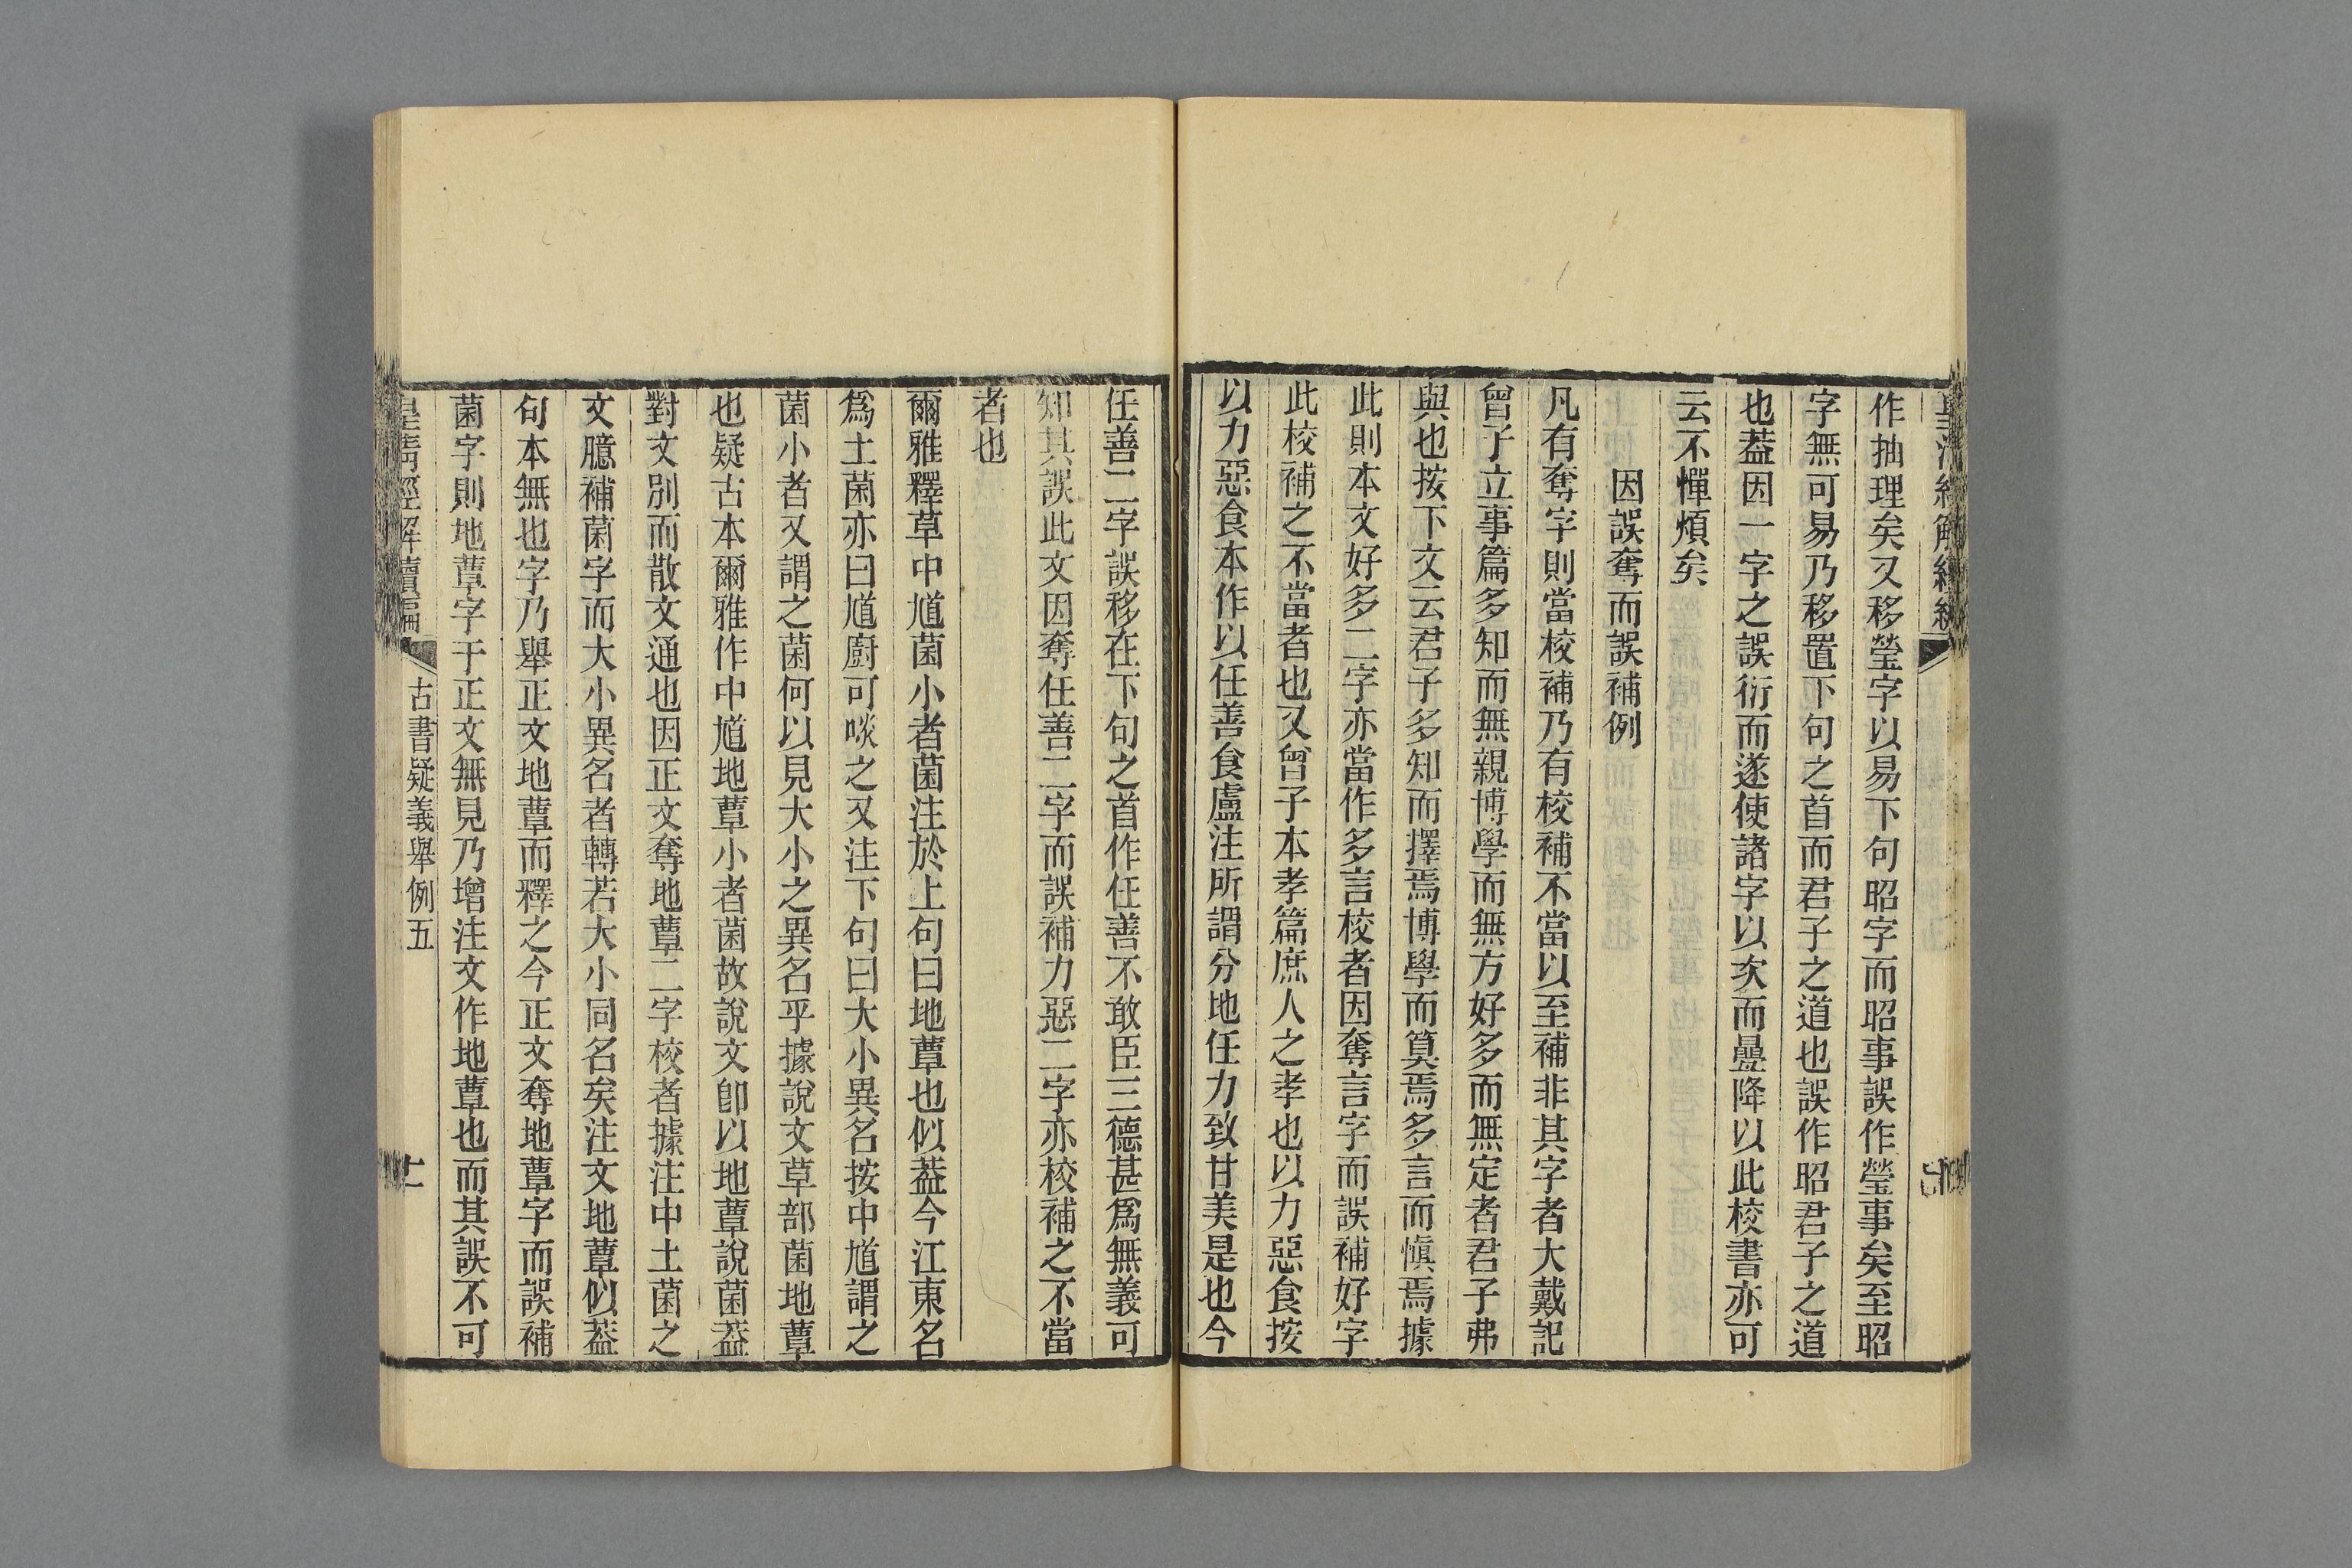 作抽理矣又移瑩字以易下句昭字而昭事誤作瑩事矣至昭
字無可易乃移置下句之首而君子之道也誤作昭君子之道
也葢因一字之誤衍而遂使諸字以次而疊降以此校書亦可
云不憚煩矣
因誤奪而誤補例
凡有奪字則當校補乃有校補不當以至補非其字者大戴記
曾子立事篇多知而無親博學而無方好多而無定者君子弗
與也按下文云君子多知而擇焉博學而算焉多言而愼焉據
此則本文好多二字亦當作多言校者因奪言字而誤補好字
此校補之不當者也又曾子本孝篇庶人之孝也以力惡食按
以力惡食本作以任善食盧注所謂分地任力致甘美是也今
任善二字誤移在下句之首作任善不敢臣三德甚爲無義可
知其誤此文因奪任善二字而誤補力惡二字亦校補之不當
者也
爾雅釋草中馗菌小者菌注於上句曰地蕈也似葢今江東名
爲土菌亦曰馗廚可啖之又注下句曰大小異名按中馗謂之
菌小者又謂之菌何以見大小之異名乎據說文草部菌地蕈
也疑古本爾雅作中馗地蕈小者菌故說文卽以地蕈說菌葢
對文別而散文通也因正文奪地蕈二字校者據注中土菌之
文臆補菌字而大小異名者轉若大小同名矣注文地蕈似葢
句本無也字乃舉正文地蕈而釋之今正文奪地蕈字而誤補
菌字則地蕈字于正文無見乃增注文作地蕈也而其誤不可
皇清經解續編
古書疑義舉例五